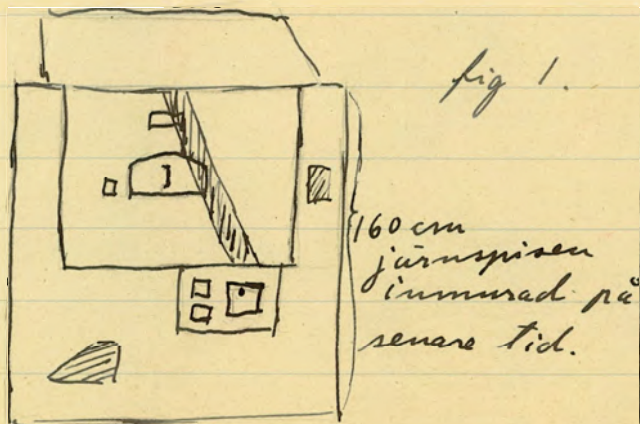 fig 1.
160 cm
järnspisen
inmurad på
senare tid.